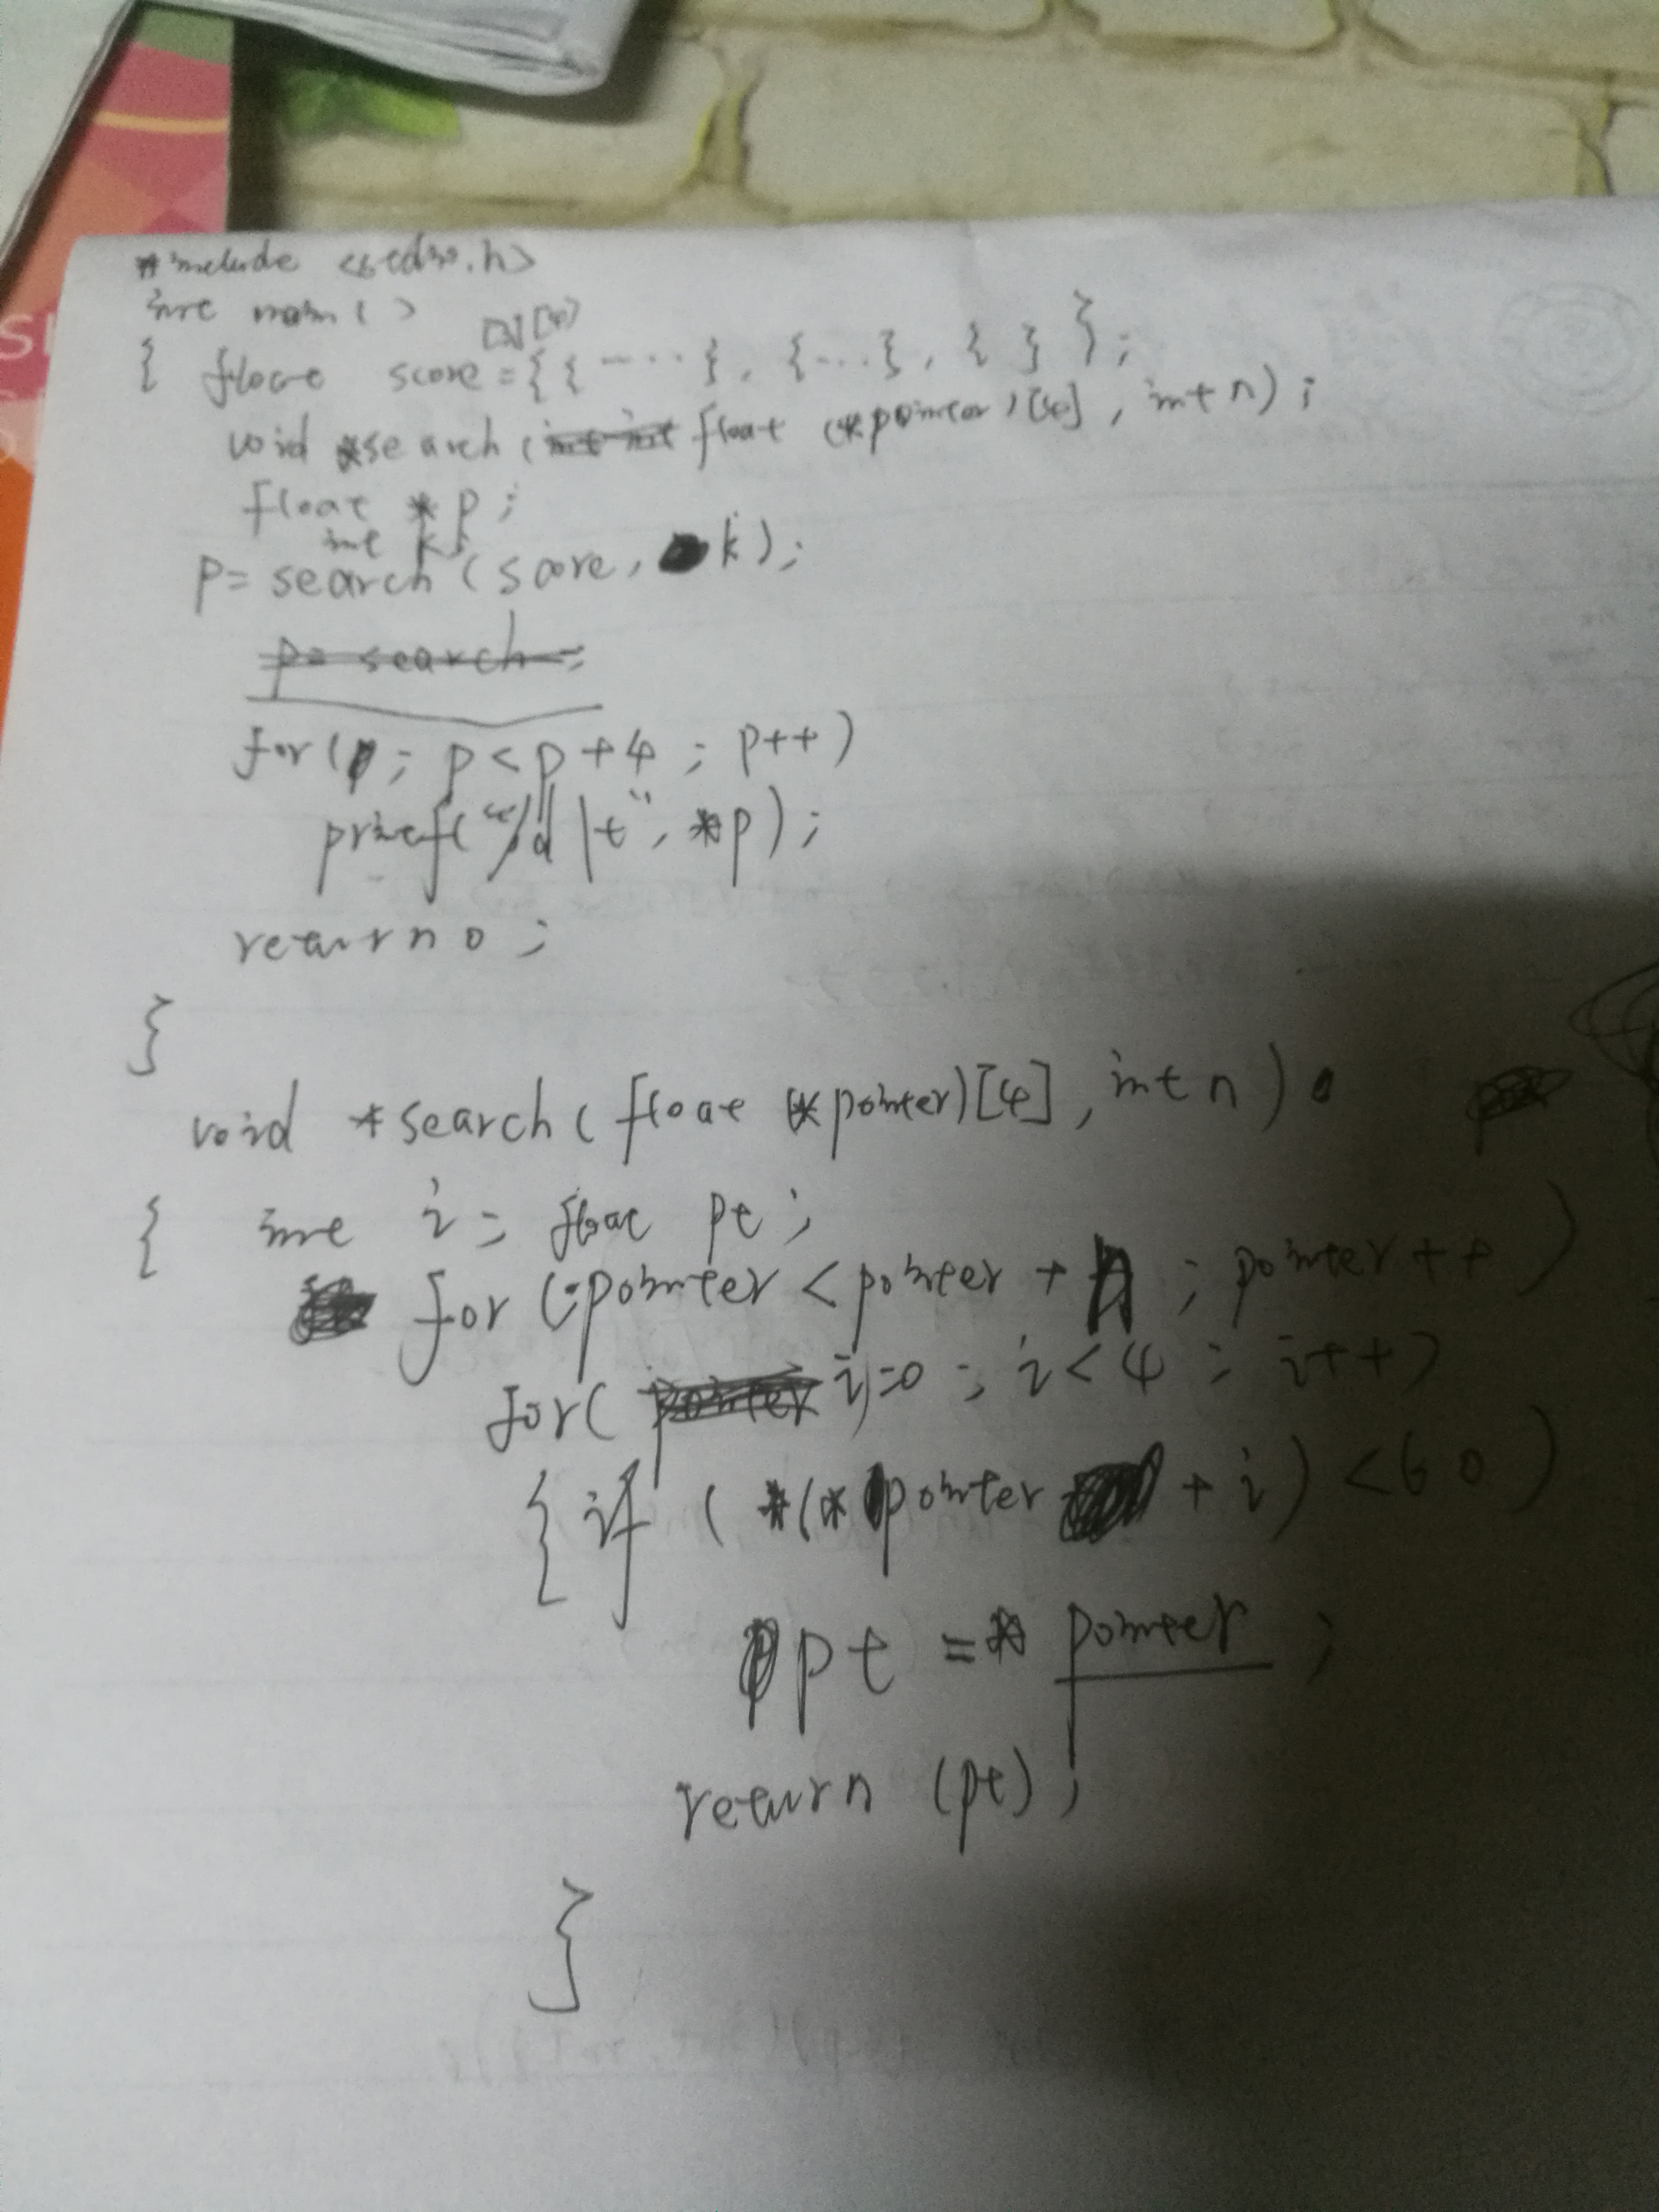 #include <stdio.h>
int main()
[][4]
{ float score={{ ····}, {...}, { } };
void *search ( float (*pointer)[4], int n);
float *p;
int k;
p= search (score, k);
p= search
for(p; p<p+4; p++)
printf("%d \t", *p);
return 0;
}
void *search( float (*pointer)[4], int n)
{ int i; float pt;
for (;pointer < pointer + n; pointer++)
for( i=0; i<4; i++)
{ if ( *(*pointer + i) <60)
pt = * pointer;
return (pt);
}